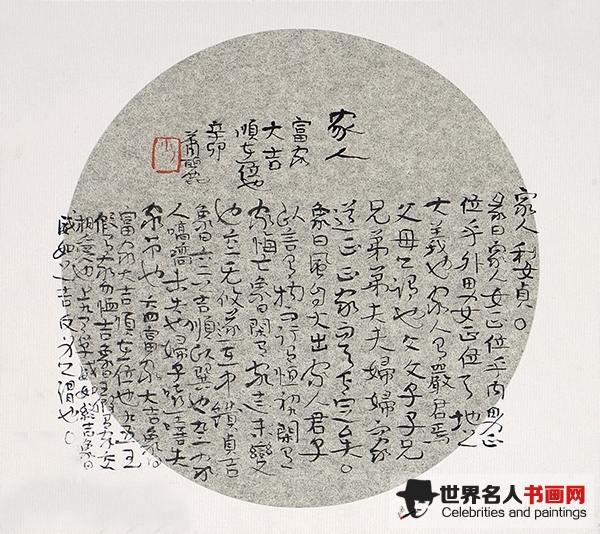 家人
富家
大吉
順在位也
辛卯
家人利女貞。
彖曰家人女正位乎內男正
位乎外男女正位天地之
大義也家人有嚴君焉
父母之謂也父父子子兄
兄弟弟夫夫婦婦家
道正正家而天下定矣。
象曰風自火出家人君子
以言有物而行有恒初閑有
家悔亡象曰閑有家志未變
也六二无攸遂在中饋貞吉
象曰六二吉順以巽也九三家
人嗃嗃未失也婦子嘻嘻失
家節也六四富家大吉象曰
富家大吉順在位也九五王
假有家勿恤吉象曰王假有家交
相愛也上九有孚威如終吉象曰
威如之吉反身之謂也。
世界名人书画网
Celebrities and paintings